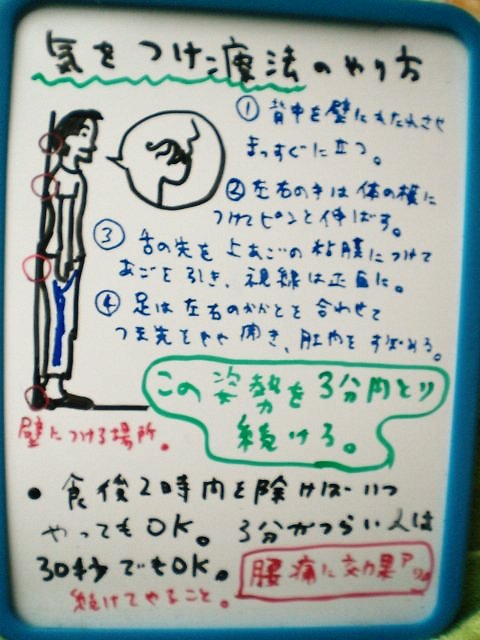 気をつけ療法のやり方
① 背中を壁にもたれさせ
まっすぐに立つ。
② 左右の手は体の横に
つけてピンと伸ばす。
③ 舌の先を上あごの粘膜につけて
あごを引き、視線は正面に。
④ 足は左右のかかとを合わせて
つま先をやや開き、肛門をすぼめる。
この姿勢を3分間とり
続ける。
壁につける場所。
● 食後2時間を除けばいつ
やってもOK。3分がつらい人は
30秒でもOK。
続けてやること。
腰痛に効果アリ